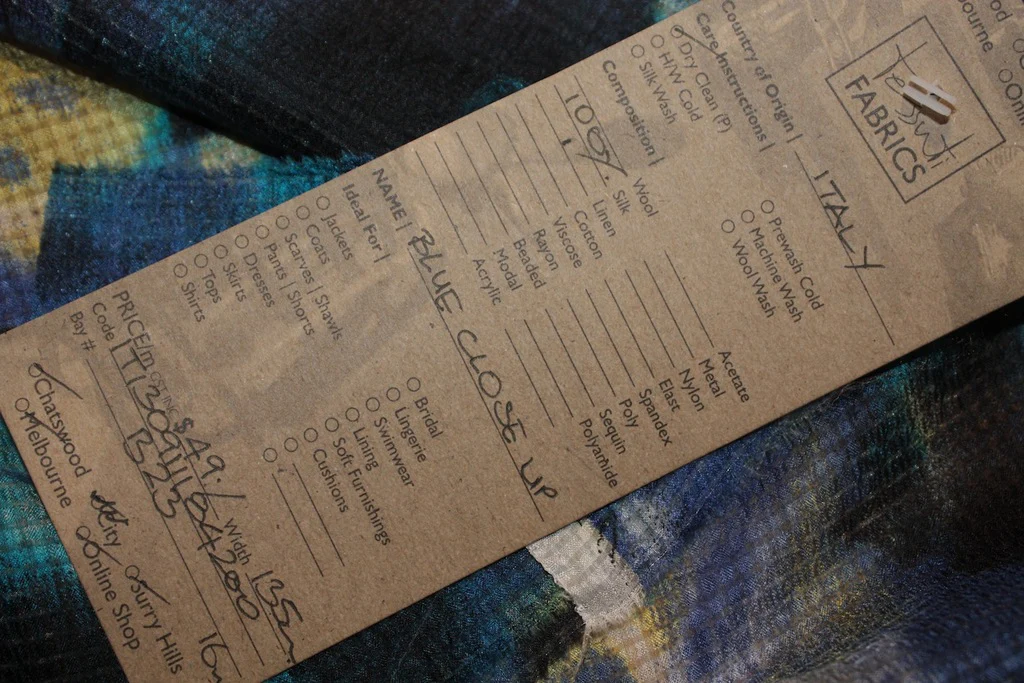 Tessuti
FABRICS
Country of Origin | ITALY
Care Instructions |
Dry Clean (P) Prewash Cold
H/W Cold Machine Wash
Silk Wash Wool Wash
Composition |
Wool Acetate
100% Silk Metal
Linen Nylon
Cotton Elast
Viscose Spandex
Rayon Poly
Beaded Sequin
Modal Polyamide
Acrylic
NAME | BLUE CLOSE UP
Ideal For |
Jackets Bridal
Coats Lingerie
Scarves | Shawls Swimwear
Pants | Shorts Lining
Dresses Soft Furnishings
Skirts Cushions
Tops
Shirts
PRICE/m $49./ Width 135m
Code
Bay # B23 16m
Chatswood City Surry Hills
Melbourne Online Shop